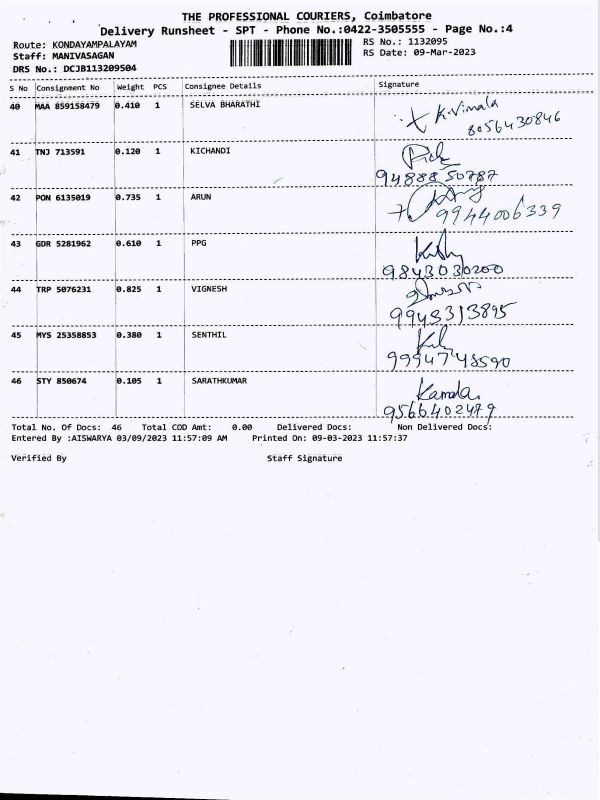 THE PROFESSIONAL COURIERS, Coimbatore
Delivery Runsheet - SPT - Phone No.:0422-3505555 - Page No.:4
Route: KONDAYAMPALAYAM RS No.: 1132095
Staff: MANIVASAGAN RS Date: 09-Mar-2023
DRS No.: DCJB113209504
S No Consignment No Weight PCS Consignee Details Signature
40 MAA 859158479 0.410 1 SELVA BHARATHI K.Vimala
8056430846
41 TNJ 713591 0.120 1 KICHANDI
9488850787
42 PON 6135019 0.735 1 ARUN
9944006339
43 GDR 5281962 0.610 1 PPG
9843030200
44 TRP 5076231 0.825 1 VIGNESH
9943313895
45 MYS 25358853 0.380 1 SENTHIL
46 STY 850674 0.105 1 SARATHKUMAR Kamala
9566402479
Total No. Of Docs: 46 Total COD Amt: 0.00 Delivered Docs: Non Delivered Docs:
Entered By :AISWARYA 03/09/2023 11:57:09 AM Printed On: 09-03-2023 11:57:37
Verified By Staff Signature